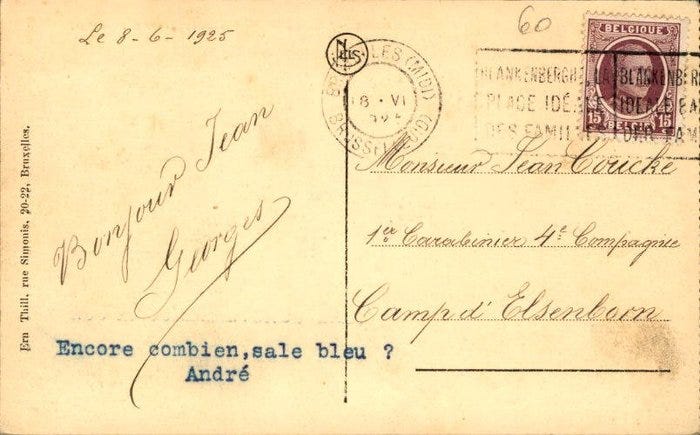 Le 8-6-1925
60
BELGIQUE
15 15
BELGIË
NELS
BRUXELLES (MIDI)
8 · VI
BRUSSEL (ZUID)
BLANKENBERGHE, LA
PLAGE IDÉALE
DES FAMILLES
BLANKENBER
IDEALE BA
DER FAM
Bonjour Jean
Georges
Encore combien, sale bleu ?
André
Monsieur Jean Coucke
1er Carabinier 4e Compagnie
Camp d'Elsenborn
Ern Thill, rue Simonis, 20-22, Bruxelles.